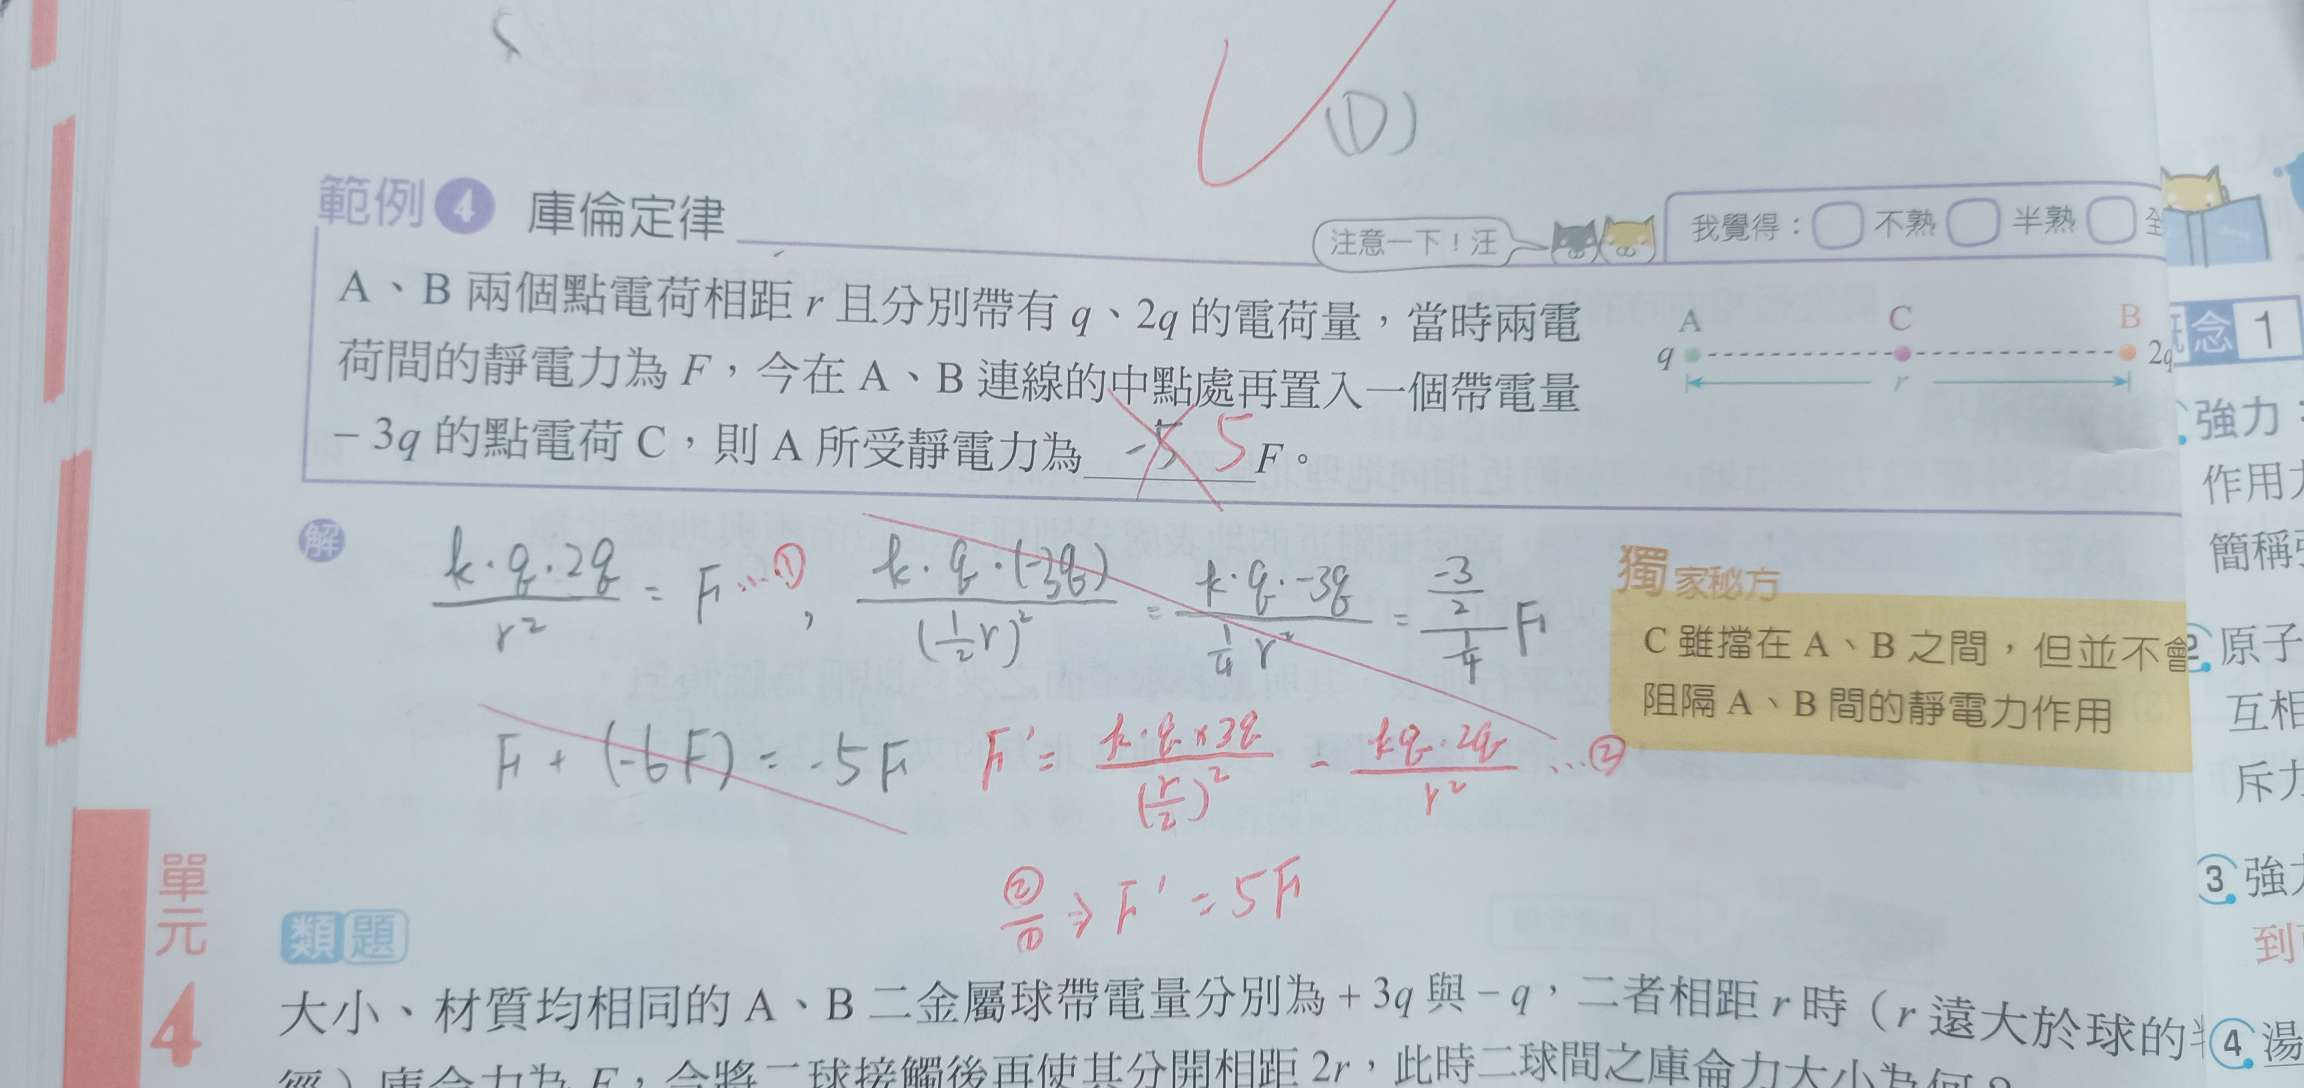 (D)
範例 4 庫倫定律
注意一下！汪
我覺得：不熟 半熟
A、B 兩個點電荷相距 r 且分別帶有 q、2q 的電荷量，當時兩電
荷間的靜電力為 F，今在 A、B 連線的中點處再置入一個帶電量
－3q 的點電荷 C，則 A 所受靜電力為 -5 5 F。
A C B
q 2q
r
解
k·q·2q / r² = F ...① , k·q·(-3q) / (1/2 r)² = k·q·-3q / 1/4 r² = -3/2 / 1/4 F
F + (-6F) = -5F
F' = k·q×3q / (r/2)² - kq·2q / r² ...②
②/① ⇒ F' = 5F
獨家秘方
C 雖擋在 A、B 之間，但並不會
阻隔 A、B 間的靜電力作用
類題
大小、材質均相同的 A、B 二金屬球帶電量分別為 + 3q 與 − q，二者相距 r 時（r 遠大於球的
徑）庫侖力為 F，今將二球接觸後再使其分開相距 2r，此時二球間之庫侖力大小為何？
單元
4
念 1
強力：
作用力
簡稱強
2. 原子
互相
斥力
3. 強力
到
4. 湯